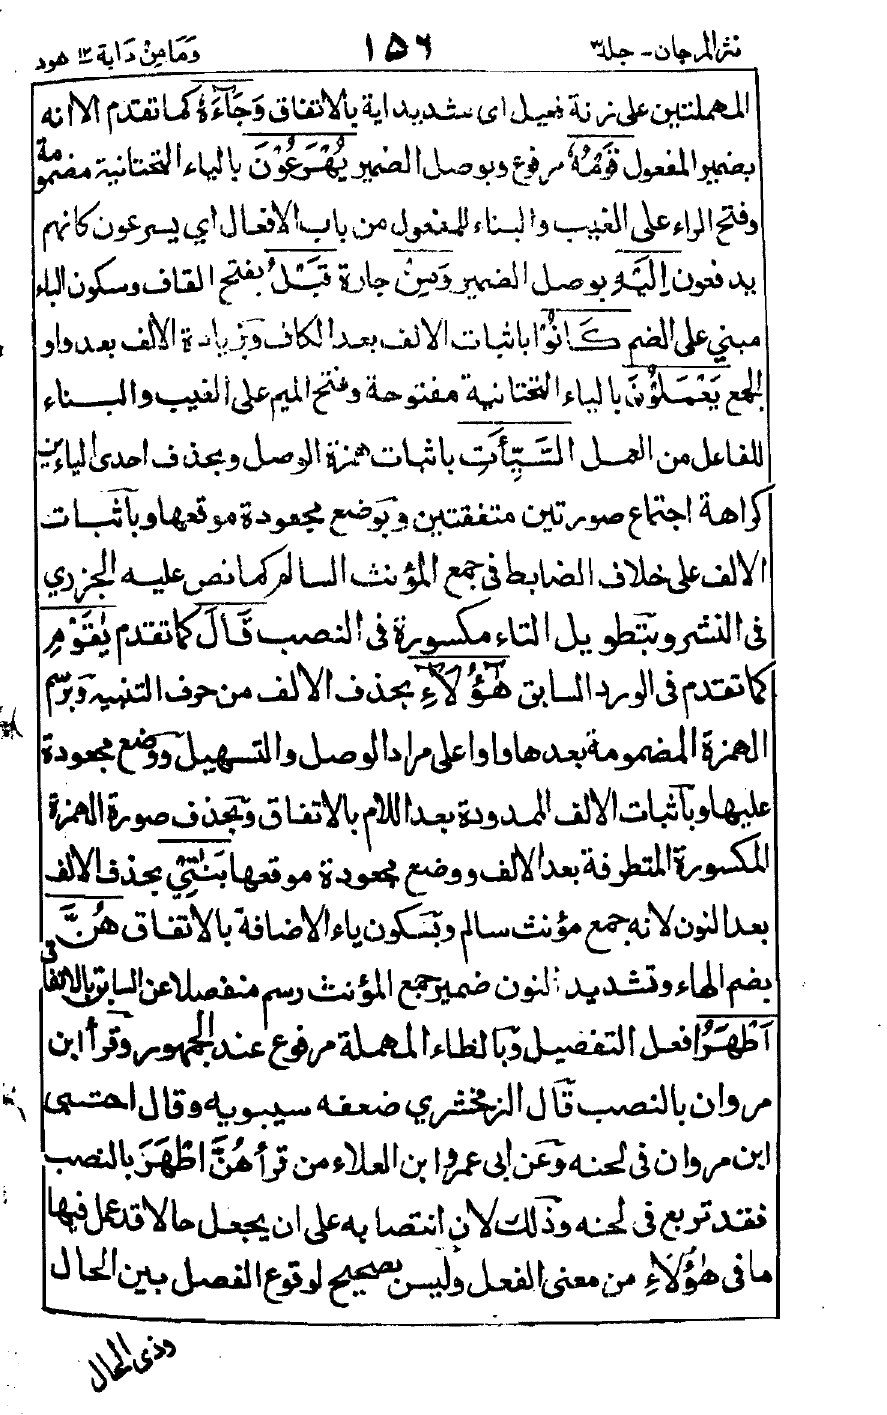 نثر المرجان - جلد ٣ ١٥٦ وَمَا مِنْ دَابة ١٢ هود
المهملتين على زنة فعيل اى شديد داية بالاتفاق وَجَآءَهٗ كما تقدم الا انه
بضمير المفعول قَوْمُهٗ مرفوع وبوصل الضمير يُهْرَعُوْنَ بالياء التحتانية مضمومة
وفتح الراء على الغيب والبناء للمفعول من باب الافعال اي يسرعون كانهم
يدفعون اِلَيْهِ بوصل الضمير وَمِنْ جارة قَبْلُ بفتح القاف وسكون الباء
مبني على الضم كَانُوْا باثبات الالف بعد الكاف وبزيادة الالف بعد واو
الجمع يَعْمَلُوْنَ بالياء التحتانية مفتوحة وفتح الميم على الغيب والبناء
للفاعل من العمل السَّيِّأٰتِ باثبات همزة الوصل وبحذف احدى الياءين
كراهة اجتماع صورتين متفقتين وبوضع مجعودة موقعها وباثبات
الالف على خلاف الضابط فى جمع المؤنث السالم كما نص عليه الجزري
فى النشر وبتطويل التاء مكسورة فى النصب قَالَ كما تقدم يٰقَوْمِ
كما تقدم فى الورد السابق هٰٓؤُلَآءِ بحذف الالف من حرف التنبيه وبرسم
الهمزة المضمومة بعدها واوا على مراد الوصل والتسهيل ووضع مجعودة
عليها وباثبات الالف الممدودة بعد اللام بالاتفاق وبحذف صورة الهمزة
المكسورة المتطرفة بعد الالف ووضع مجعودة موقعها بَنٰتِيْ بحذف الالف
بعد النون لانه جمع مؤنث سالم وبسكون ياء الاضافة بالاتفاق هُنَّ
بضم الهاء وتشديد النون ضمير جمع المؤنث رسم منفصلا عن السابق بالاتفاق
اَطْهَرُ افعل التفضيل وبالطاء المهملة مرفوع عند الجمهور وقرأ ابن
مروان بالنصب قال الزمخشري ضعفه سيبويه وقال احتبى
ابن مروان فى لحنه وعن ابى عمرو ابن العلاء من قرأ هُنَّ اطْهَرَ بالنصب
فقد تربع فى لحنه وذلك لان انتصابه على ان يجعل حالا قد عمل فيها
ما فى هٰؤُلَاءِ من معنى الفعل وليس بصحيح لوقوع الفصل بين الحال
وذى الحال